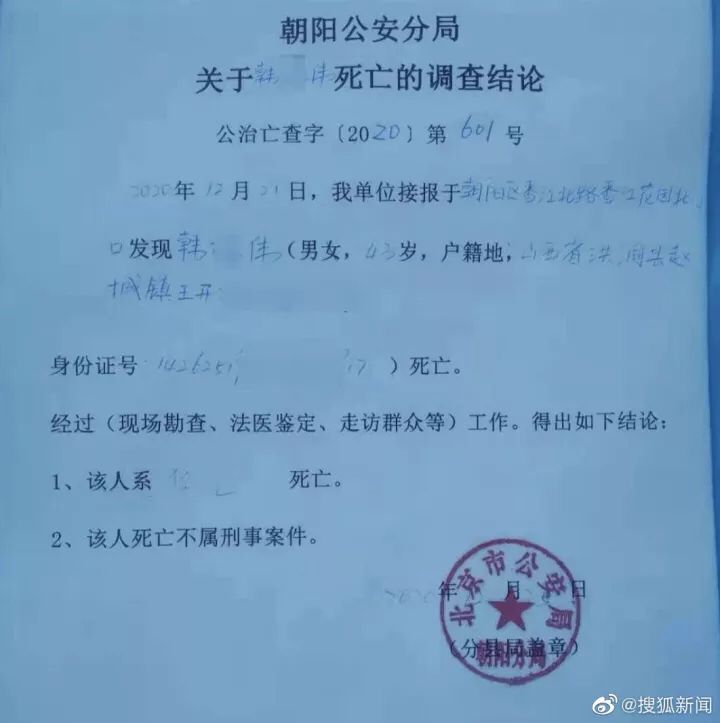 朝阳公安分局
关于韩 伟死亡的调查结论
公治亡查字〔2020〕第601号
2020年12月21日，我单位接报于朝阳区香江北路香江花园北门
口发现韩 伟（男女，43岁，户籍地，山西省洪洞县赵
城镇王开
身份证号 142625 17）死亡。
经过（现场勘查、法医鉴定、走访群众等）工作。得出如下结论：
1、该人系 死亡。
2、该人死亡不属刑事案件。
年 月 日
（分县局盖章）
北京市公安局
朝阳分局
@搜狐新闻